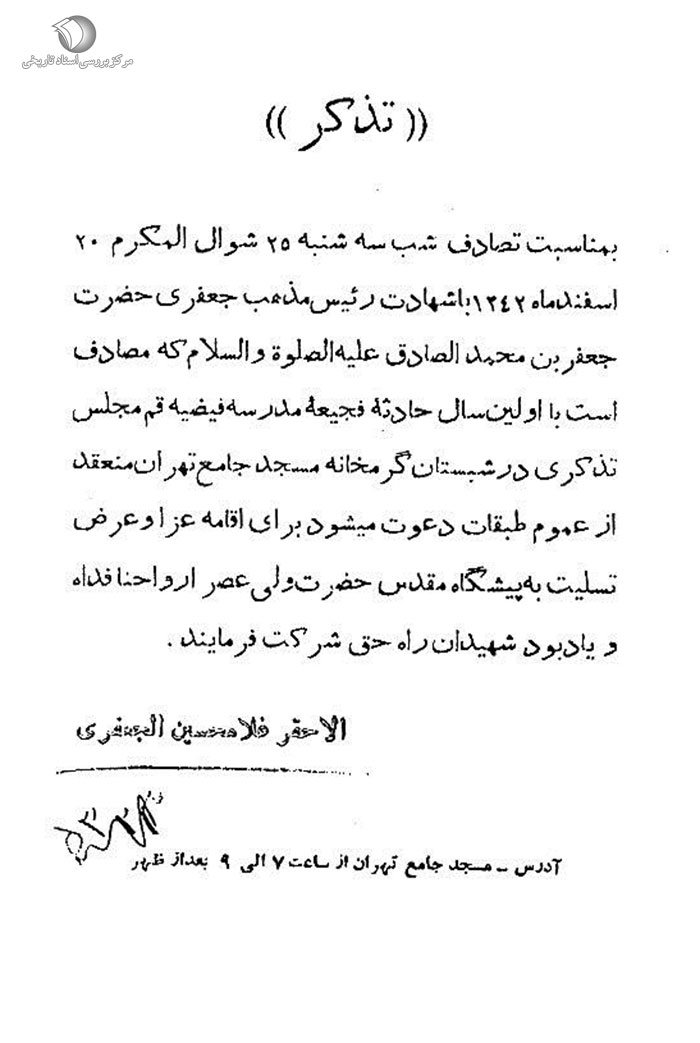 مرکز بررسی اسناد تاریخی
(( تذکر ))
بمناسبت تصادف شب سه شنبه ۲۵ شوال المکرم ۲۰
اسفندماه ۱۳۴۲ باشهادت رئیس مذهب جعفری حضرت
جعفربن محمد الصادق علیه الصلوة والسلام که مصادف
است با اولین سال حادثهٔ فجیعهٔ مدرسه فیضیه قم مجلس
تذکری درشبستان گرمخانه مسجد جامع تهران منعقد
از عموم طبقات دعوت میشود برای اقامه عزا وعرض
تسلیت به پیشگاه مقدس حضرت ولی عصر ارواحنا فداه
و یادبود شهیدان راه حق شرکت فرمایند .
الاحقر غلامحسین الجعفری
آدرس – مسجد جامع تهران از ساعت ۷ الی ۹ بعداز ظهر